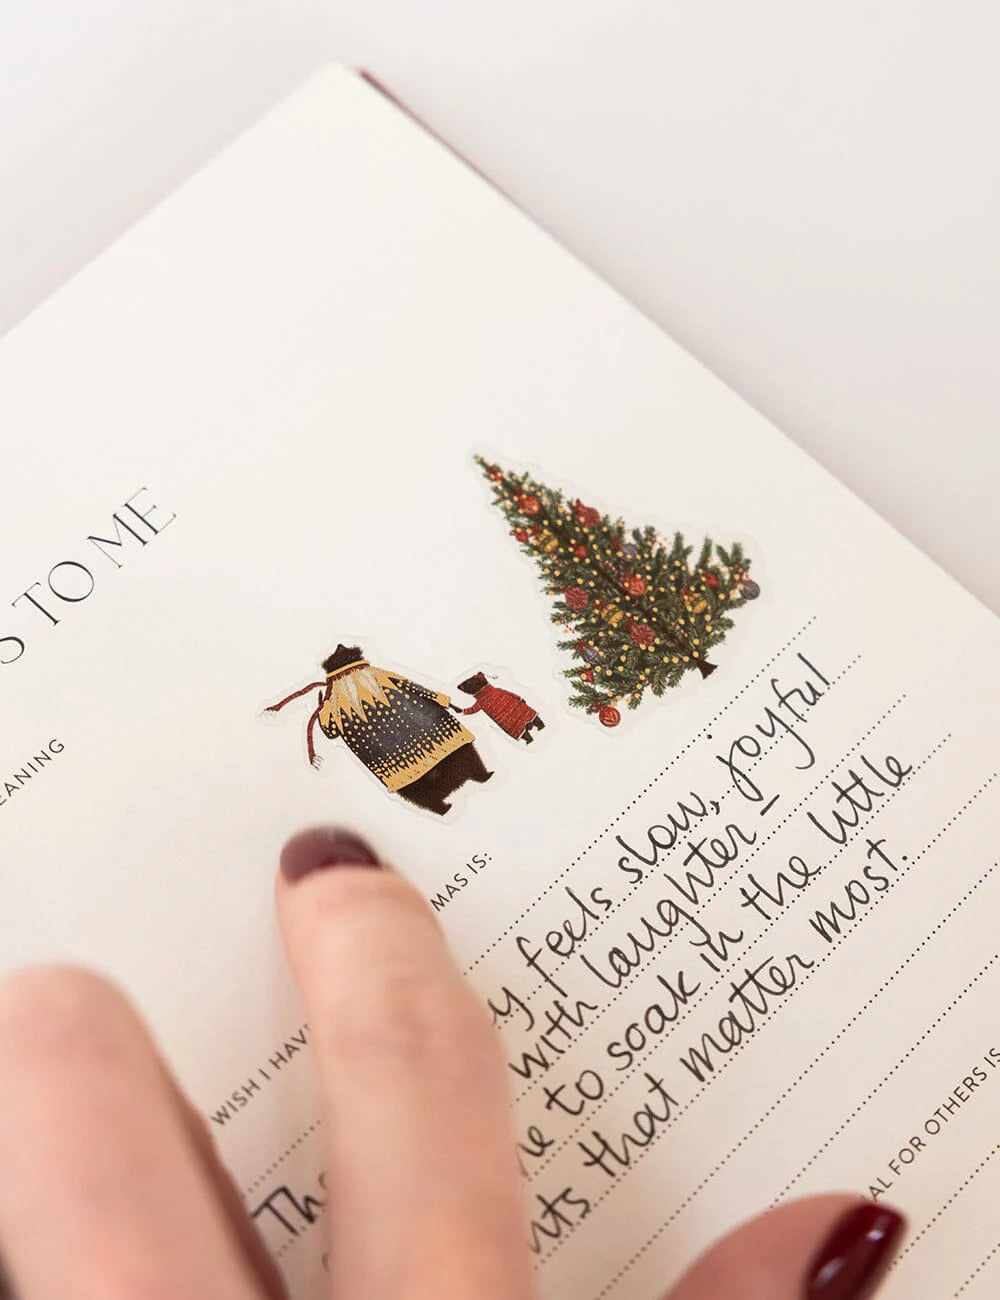 S TO ME
EANING
MAS IS:
WISH I HAV
Th
y feels slow, joyful
with laughter –
to soak in the little
nts that matter most.
AL FOR OTHERS IS